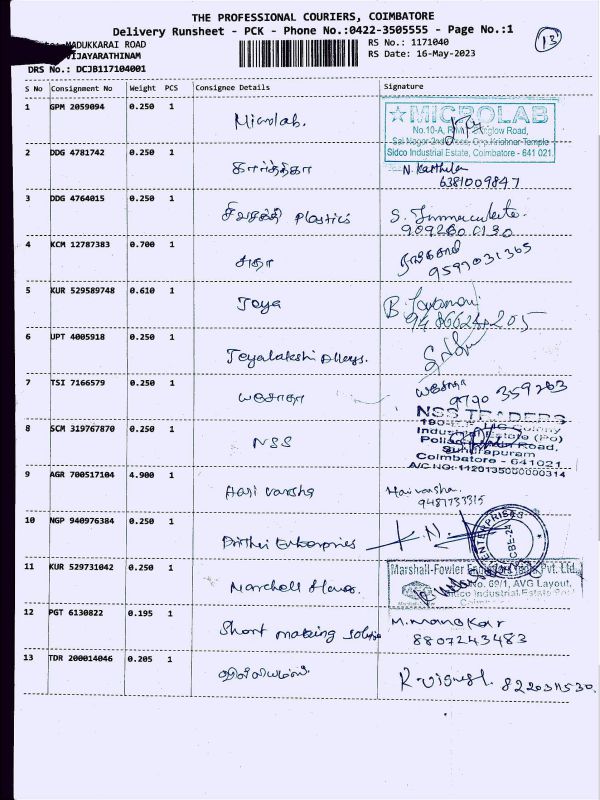 THE PROFESSIONAL COURIERS, COIMBATORE
Delivery Runsheet - PCK - Phone No.:0422-3505555 - Page No.:1
13
MADUKKARAI ROAD
RS No.: 1171040
VIJAYARATHINAM
RS Date: 16-May-2023
DRS No.: DCJB117104001
S No Consignment No Weight PCS Consignee Details Signature
1 GPM 2059094 0.250 1 Microlab.
☆MICROLAB
No.10-A, Road,
Sai Nagar 2nd Cross, Opp.Krishnar Temple
Sidco Industrial Estate, Coimbatore - 641 021.
2 DDG 4781742 0.250 1 கார்த்திகா N. Karthika
6381009847
3 DDG 4764015 0.250 1 சிவசக்தி Plastics S.
9092600130
4 KCM 12787383 0.700 1 சுதா
9597031365
5 KUR 529589748 0.610 1 Jeya B.
9486624205
6 UPT 4005918 0.250 1
7 TSI 7166579 0.250 1 யசோதா யசோதா
9790 359263
8 SCM 319767870 0.250 1 NSS
NSS TRADERS
Industrial Estate (Po)
Road,
Sundrapuram
Coimbatore - 641021
A/C NO: 1120135000000314
9 AGR 700517104 4.900 1 Hari Varsha Harivarsha.
9487733315
10 NGP 940976384 0.250 1 Enterprises K.N
ENTERPRISES
CBE-24
11 KUR 529731042 0.250 1
Marshall-Fowler Engineers India Pvt. Ltd.,
No. 69/1, AVG Layout,
Sidco Industrial Estate Post
12 PGT 6130822 0.195 1 Short making solution M. Manokar
8807243483
13 TDR 200014046 0.205 1 வில்லியம்ஸ் R. Vignesh.